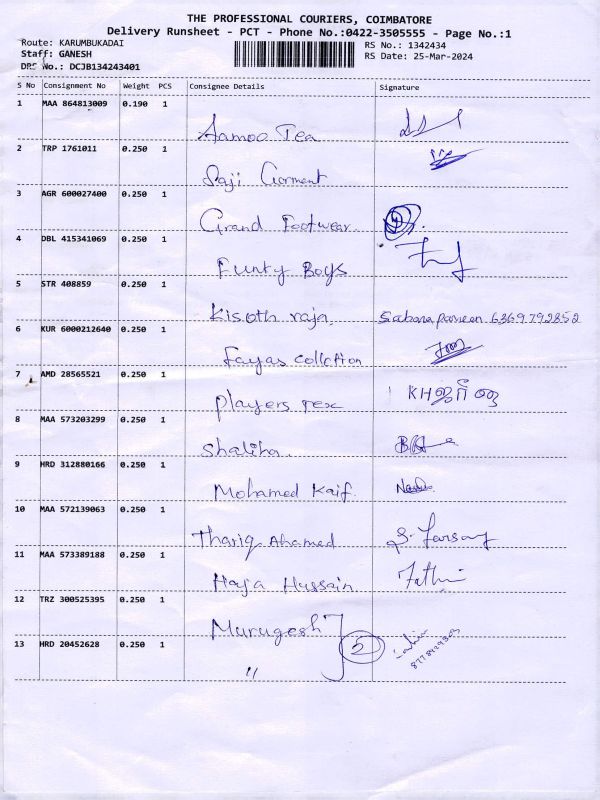 THE PROFESSIONAL COURIERS, COIMBATORE
Delivery Runsheet - PCT - Phone No.:0422-3505555 - Page No.:1
Route: KARUMBUKADAI RS No.: 1342434
Staff: GANESH RS Date: 25-Mar-2024
DRS No.: DCJB134243401
S No Consignment No Weight PCS Consignee Details Signature
1 MAA 864813009 0.190 1
Aamoo Tea
2 TRP 1761011 0.250 1
Saji Garment
3 AGR 600027400 0.250 1
Grand Footwear
4 DBL 415341069 0.250 1
Funky Boys
5 STR 408859 0.250 1
Kisoth raja, Sabana parveen 6369792852
6 KUR 6000212640 0.250 1
Fayas collction
7 AMD 28565521 0.250 1
players rex
8 MAA 573203299 0.250 1
Shaliha
9 HRD 312880166 0.250 1
Mohamed Kaif
10 MAA 572139063 0.250 1
Thariq Ahamed
11 MAA 573389188 0.250 1
Haja Hussain
12 TRZ 300525395 0.250 1
Murugesh
13 HRD 20452628 0.250 1 2
"